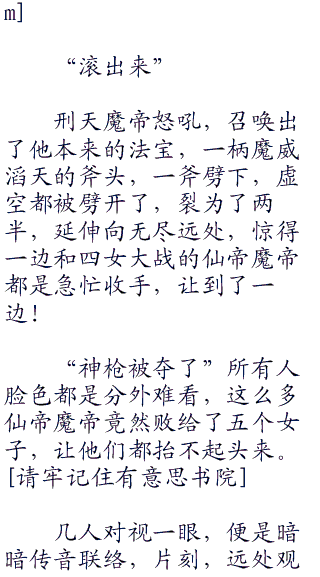 m]
“滚出来”
刑天魔帝怒吼，召唤出
了他本来的法宝，一柄魔威
滔天的斧头，一斧劈下，虚
空都被劈开了，裂为了两
半，延伸向无尽远处，惊得
一边和四女大战的仙帝魔帝
都是急忙收手，让到了一
边！
“神枪被夺了”所有人
脸色都是分外难看，这么多
仙帝魔帝竟然败给了五个女
子，让他们都抬不起头来。
[请牢记住有意思书院]
几人对视一眼，便是暗
暗传音联络，片刻，远处观